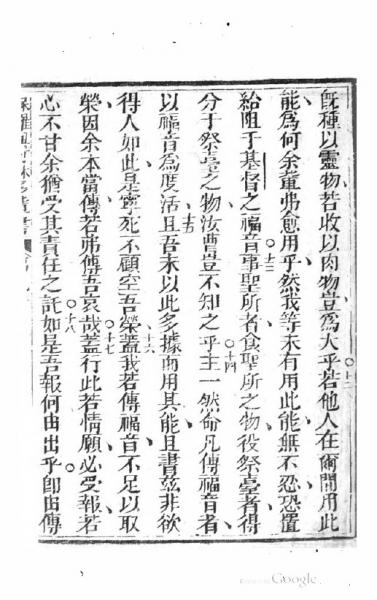 旣種以靈物若收以肉物豈爲大乎若他人在爾間用此
十二
能爲何余輩弗愈用乎然我等未有用此能無不忍恐置
給阻于基督之福音事聖所者食聖所之物役祭臺者得
十三
分于祭臺之物汝曹豈不知之乎主一然命凡傳福音者
十四
以福音爲度活且吾未以此多據而用其能且書玆非欲
十五
得人如此是寧死不顧空吾榮蓋我若傳福音不足以取
十六
榮因余本當傳若弗傳吾哀哉蓋行此若情願必受報若
十七
心不甘余猶受其責任之託如是吾報何由出乎卽由傳
十八
Google